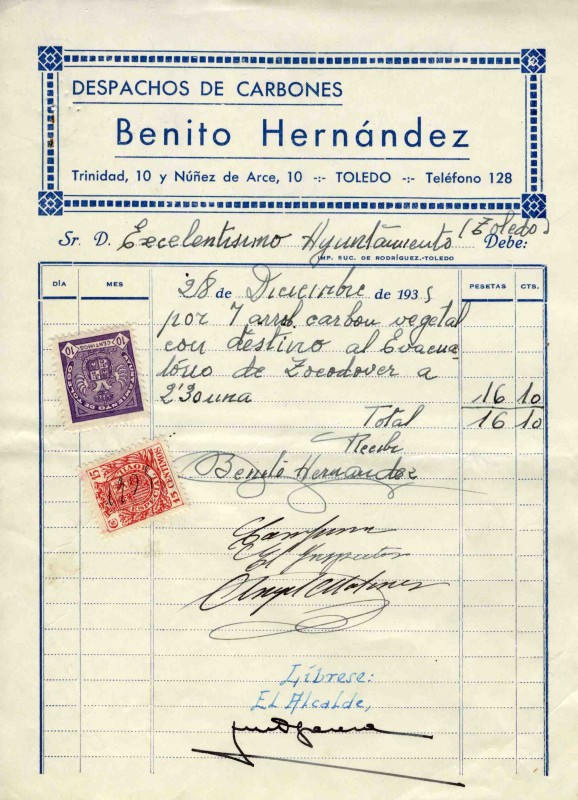 DESPACHOS DE CARBONES
Benito Hernández
Trinidad, 10 y Núñez de Arce, 10 -:- TOLEDO -:- Teléfono 128
Sr. D. Excelentisimo Ayuntamiento (Toledo) Debe:
IMP. SUC. DE RODRÍGUEZ.-TOLEDO
DÍA MES PESETAS CTS.
28 de Diciembre de 1935
por 7 arrob. carbon vegetal
con destino al Evacua-
tório de Zocodover a
2'30 una 16 10
Total 16 10
Recibi
Benito Hernandez
10 CENTIMOS 10
AYUNTAMIENTO DE TOLEDO
15 CENTIMOS 15
ESPECIAL MOVIL
Conforme
El Inspector
Angel Martinez
Líbrese:
El Alcalde,